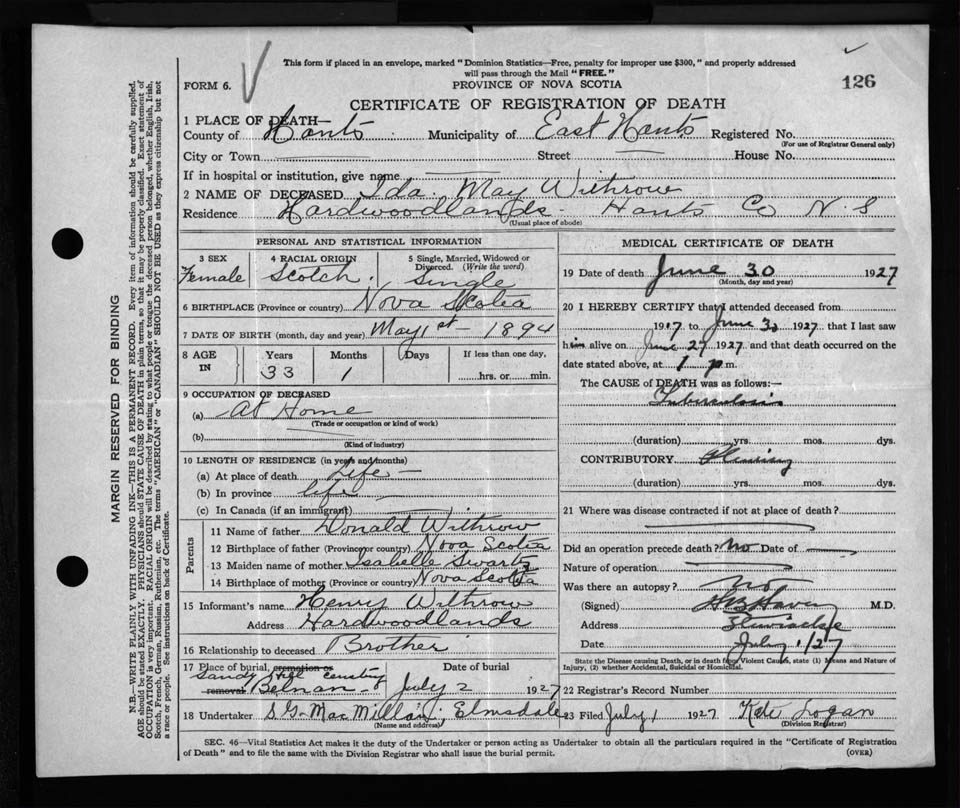 This form if placed in an envelope, marked "Dominion Statistics—Free, penalty for improper use $300," and properly addressed
will pass through the Mail "FREE."
126
FORM 6.
PROVINCE OF NOVA SCOTIA
CERTIFICATE OF REGISTRATION OF DEATH
1 PLACE OF DEATH—
County of Hants Municipality of East Hants Registered No.
(For use of Registrar General only)
City or Town Street House No.
If in hospital or institution, give name
2 NAME OF DECEASED Ida May Withrow
Residence Hardwoodlands Hants Co N.S
(Usual place of abode)
PERSONAL AND STATISTICAL INFORMATION
3 SEX 4 RACIAL ORIGIN 5 Single, Married, Widowed or
Divorced. (Write the word)
Female Scotch Single
6 BIRTHPLACE (Province or country) Nova Scotia
7 DATE OF BIRTH (month, day and year) May 1st - 1894
8 AGE IN Years Months Days If less than one day,
33 1 hrs. or min.
9 OCCUPATION OF DECEASED
(a) At Home
(Trade or occupation or kind of work)
(b)
(Kind of industry)
10 LENGTH OF RESIDENCE (in years and months)
(a) At place of death Life
(b) In province life
(c) In Canada (if an immigrant)
Parents
11 Name of father Donald Withrow
12 Birthplace of father (Province or country) Nova Scotia
13 Maiden name of mother Isabelle Swartz
14 Birthplace of mother (Province or country) Nova Scotia
15 Informant's name Henry Withrow
Address Hardwoodlands
16 Relationship to deceased Brother
17 Place of burial, cremation or Date of burial
Sandy Hill Cemetery
removal Belnan July 2 1927
18 Undertaker S. G. MacMillan, Elmsdale
(Name and address)
MEDICAL CERTIFICATE OF DEATH
19 Date of death June 30 1927
(Month, day and year)
20 I HEREBY CERTIFY that I attended deceased from
1917 to June 30 1927 that I last saw
him alive on June 27 1927 and that death occurred on the
date stated above, at 1 p m.
The CAUSE of DEATH was as follows:—
Tuberculosis
(duration) yrs. mos. dys.
CONTRIBUTORY Pleurisy
(duration) yrs. mos. dys.
21 Where was disease contracted if not at place of death?
Did an operation precede death? No Date of
Nature of operation
Was there an autopsy? No
(Signed) M.D.
Address Stewiacke
Date July 1/27
State the Disease causing Death, or in death from Violent Causes, state (1) Means and Nature of
Injury, (2) whether Accidental, Suicidal or Homicidal.
22 Registrar's Record Number
23 Filed July 1 1927 Kate Logan
(Division Registrar)
SEC. 46—Vital Statistics Act makes it the duty of the Undertaker or person acting as Undertaker to obtain all the particulars required in the "Certificate of Registration
of Death" and to file the same with the Division Registrar who shall issue the burial permit.
(OVER)
MARGIN RESERVED FOR BINDING
N.B.—WRITE PLAINLY WITH UNFADING INK—THIS IS A PERMANENT RECORD. Every item of information should be carefully supplied.
AGE should be stated EXACTLY. PHYSICIANS should STATE CAUSE OF DEATH in plain terms, so that it may be properly classified. Exact statement of
OCCUPATION is very important. RACIAL ORIGIN will be described by stating to what people or tongue the deceased person belonged, whether English, Irish,
Scotch, French, German, Russian, Ruthenian, etc. The terms "AMERICAN" or "CANADIAN" SHOULD NOT BE USED as they express citizenship but not
a race or people. See instructions on back of Certificate.